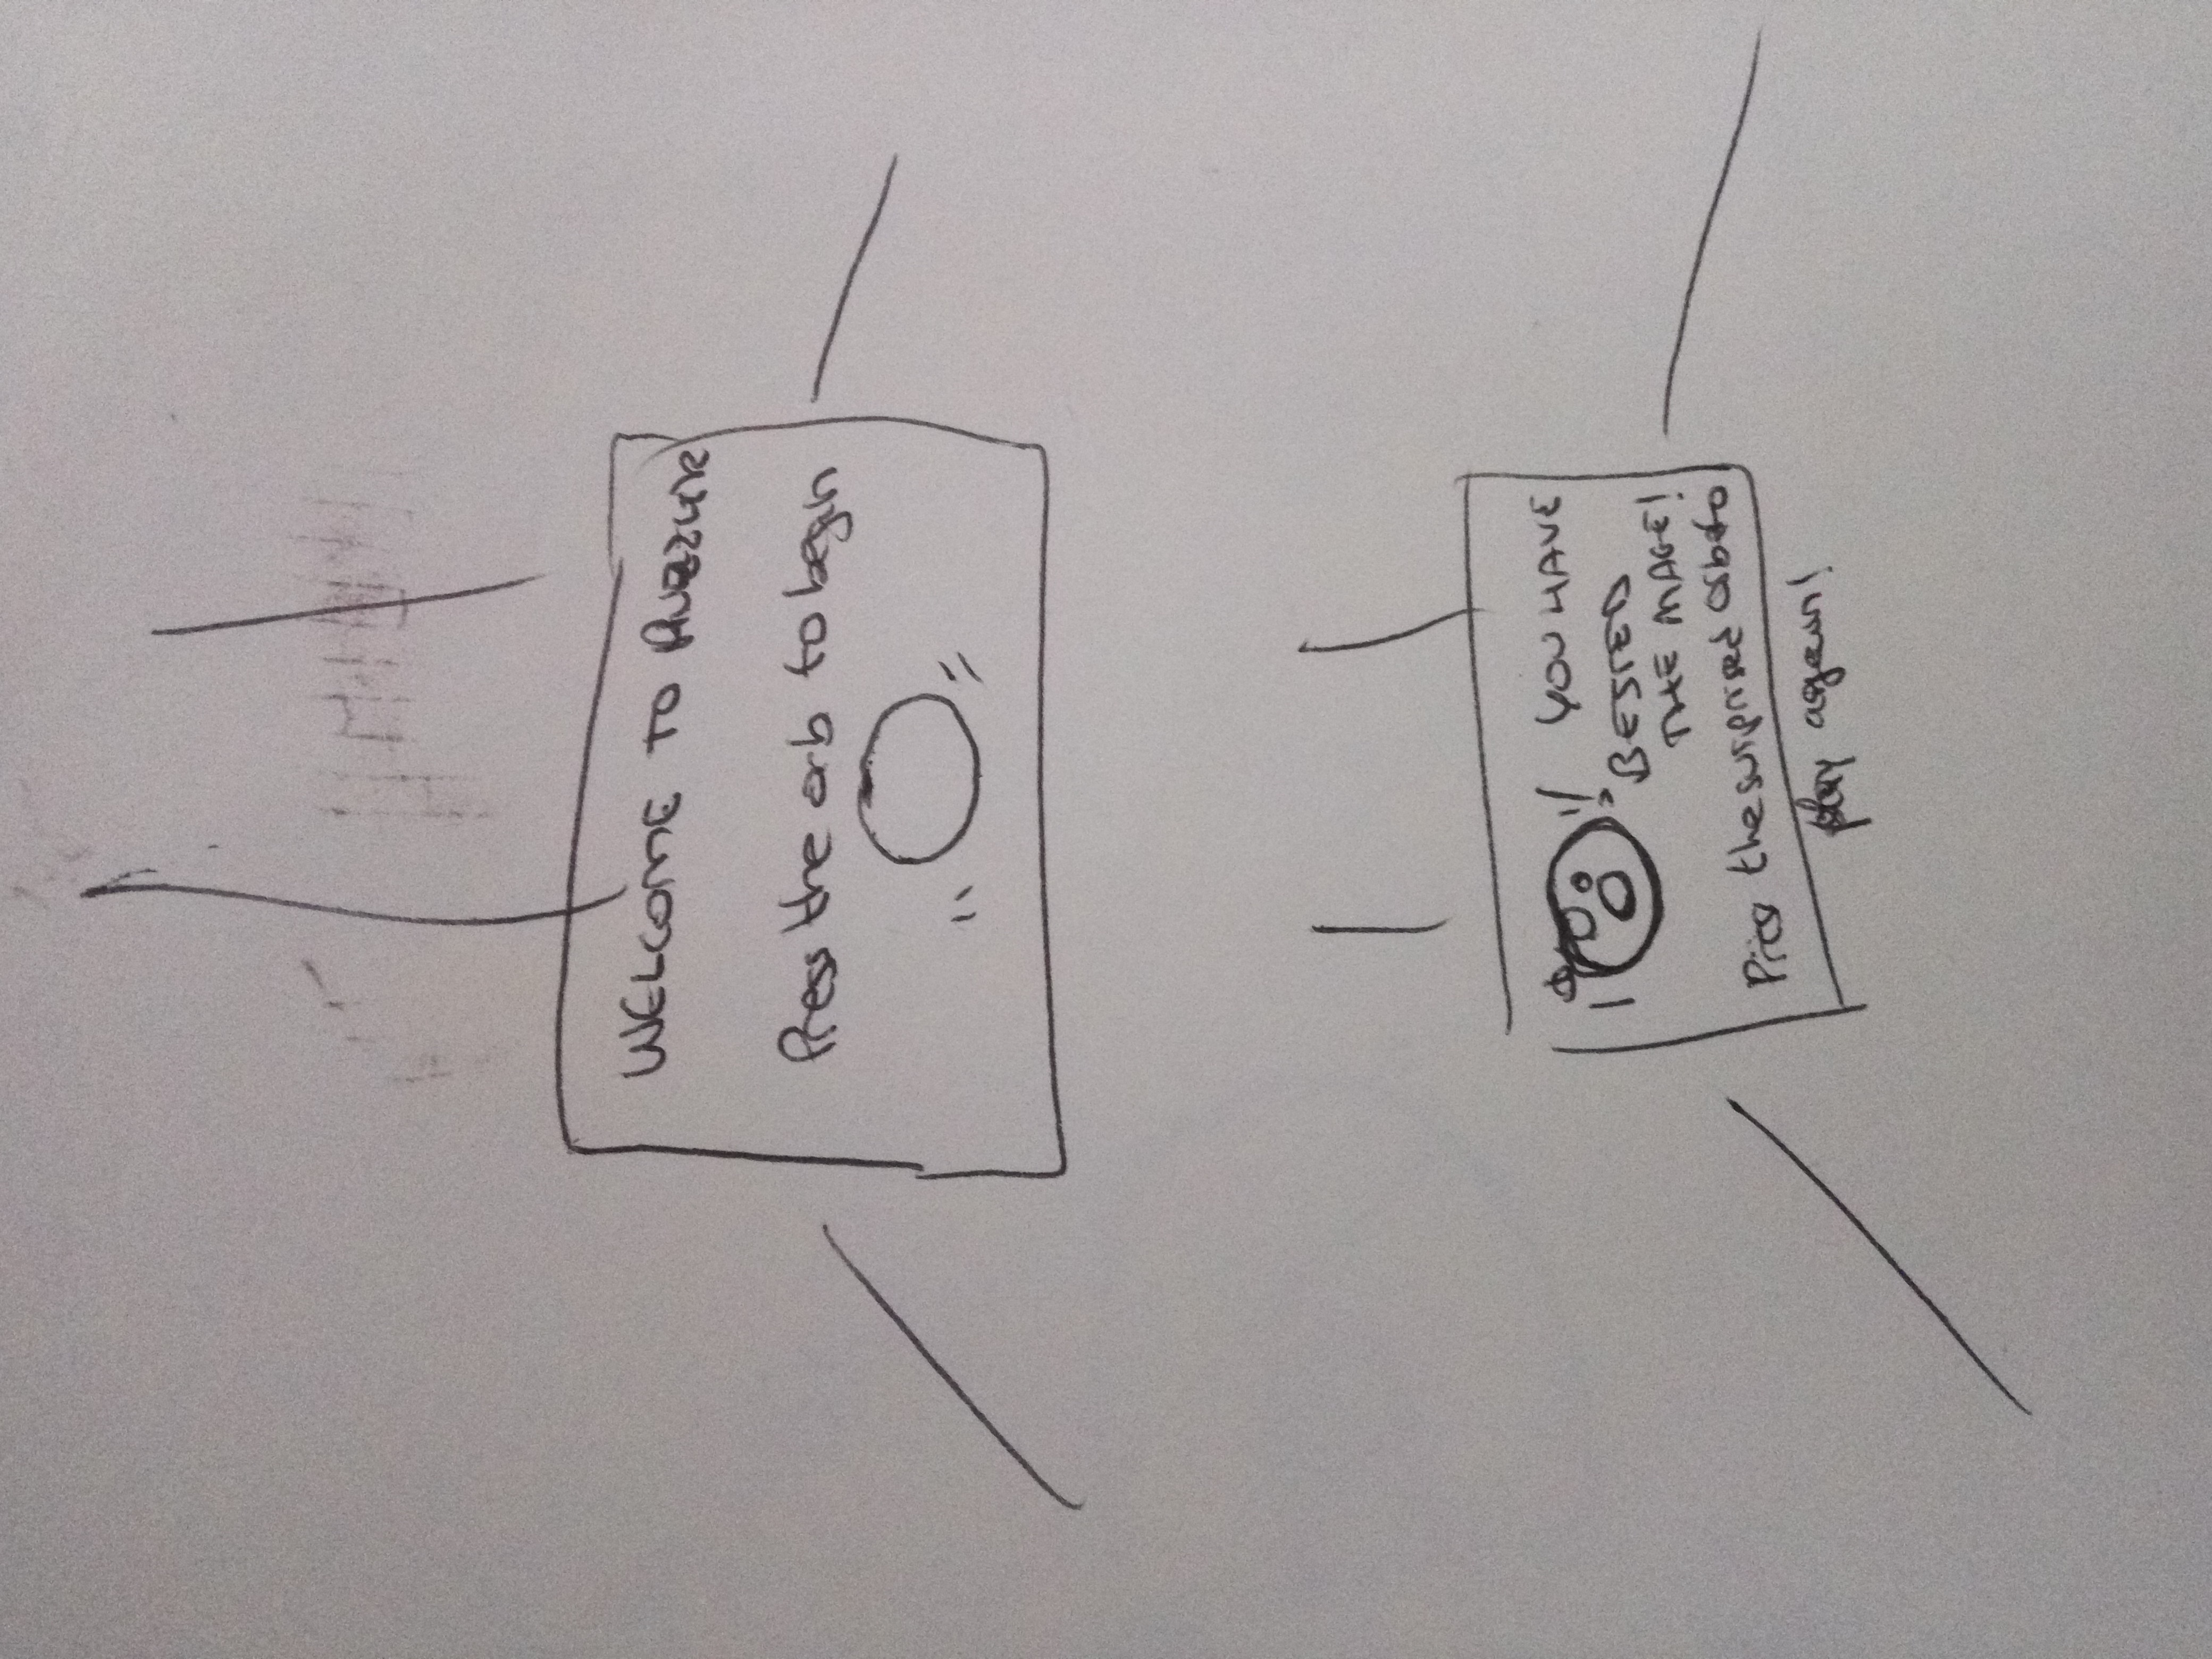 WELCOME TO PUZZLER
Press the orb to begin
YOU HAVE
BESTED
THE MAGE!
Press the surprised orb to
play again!